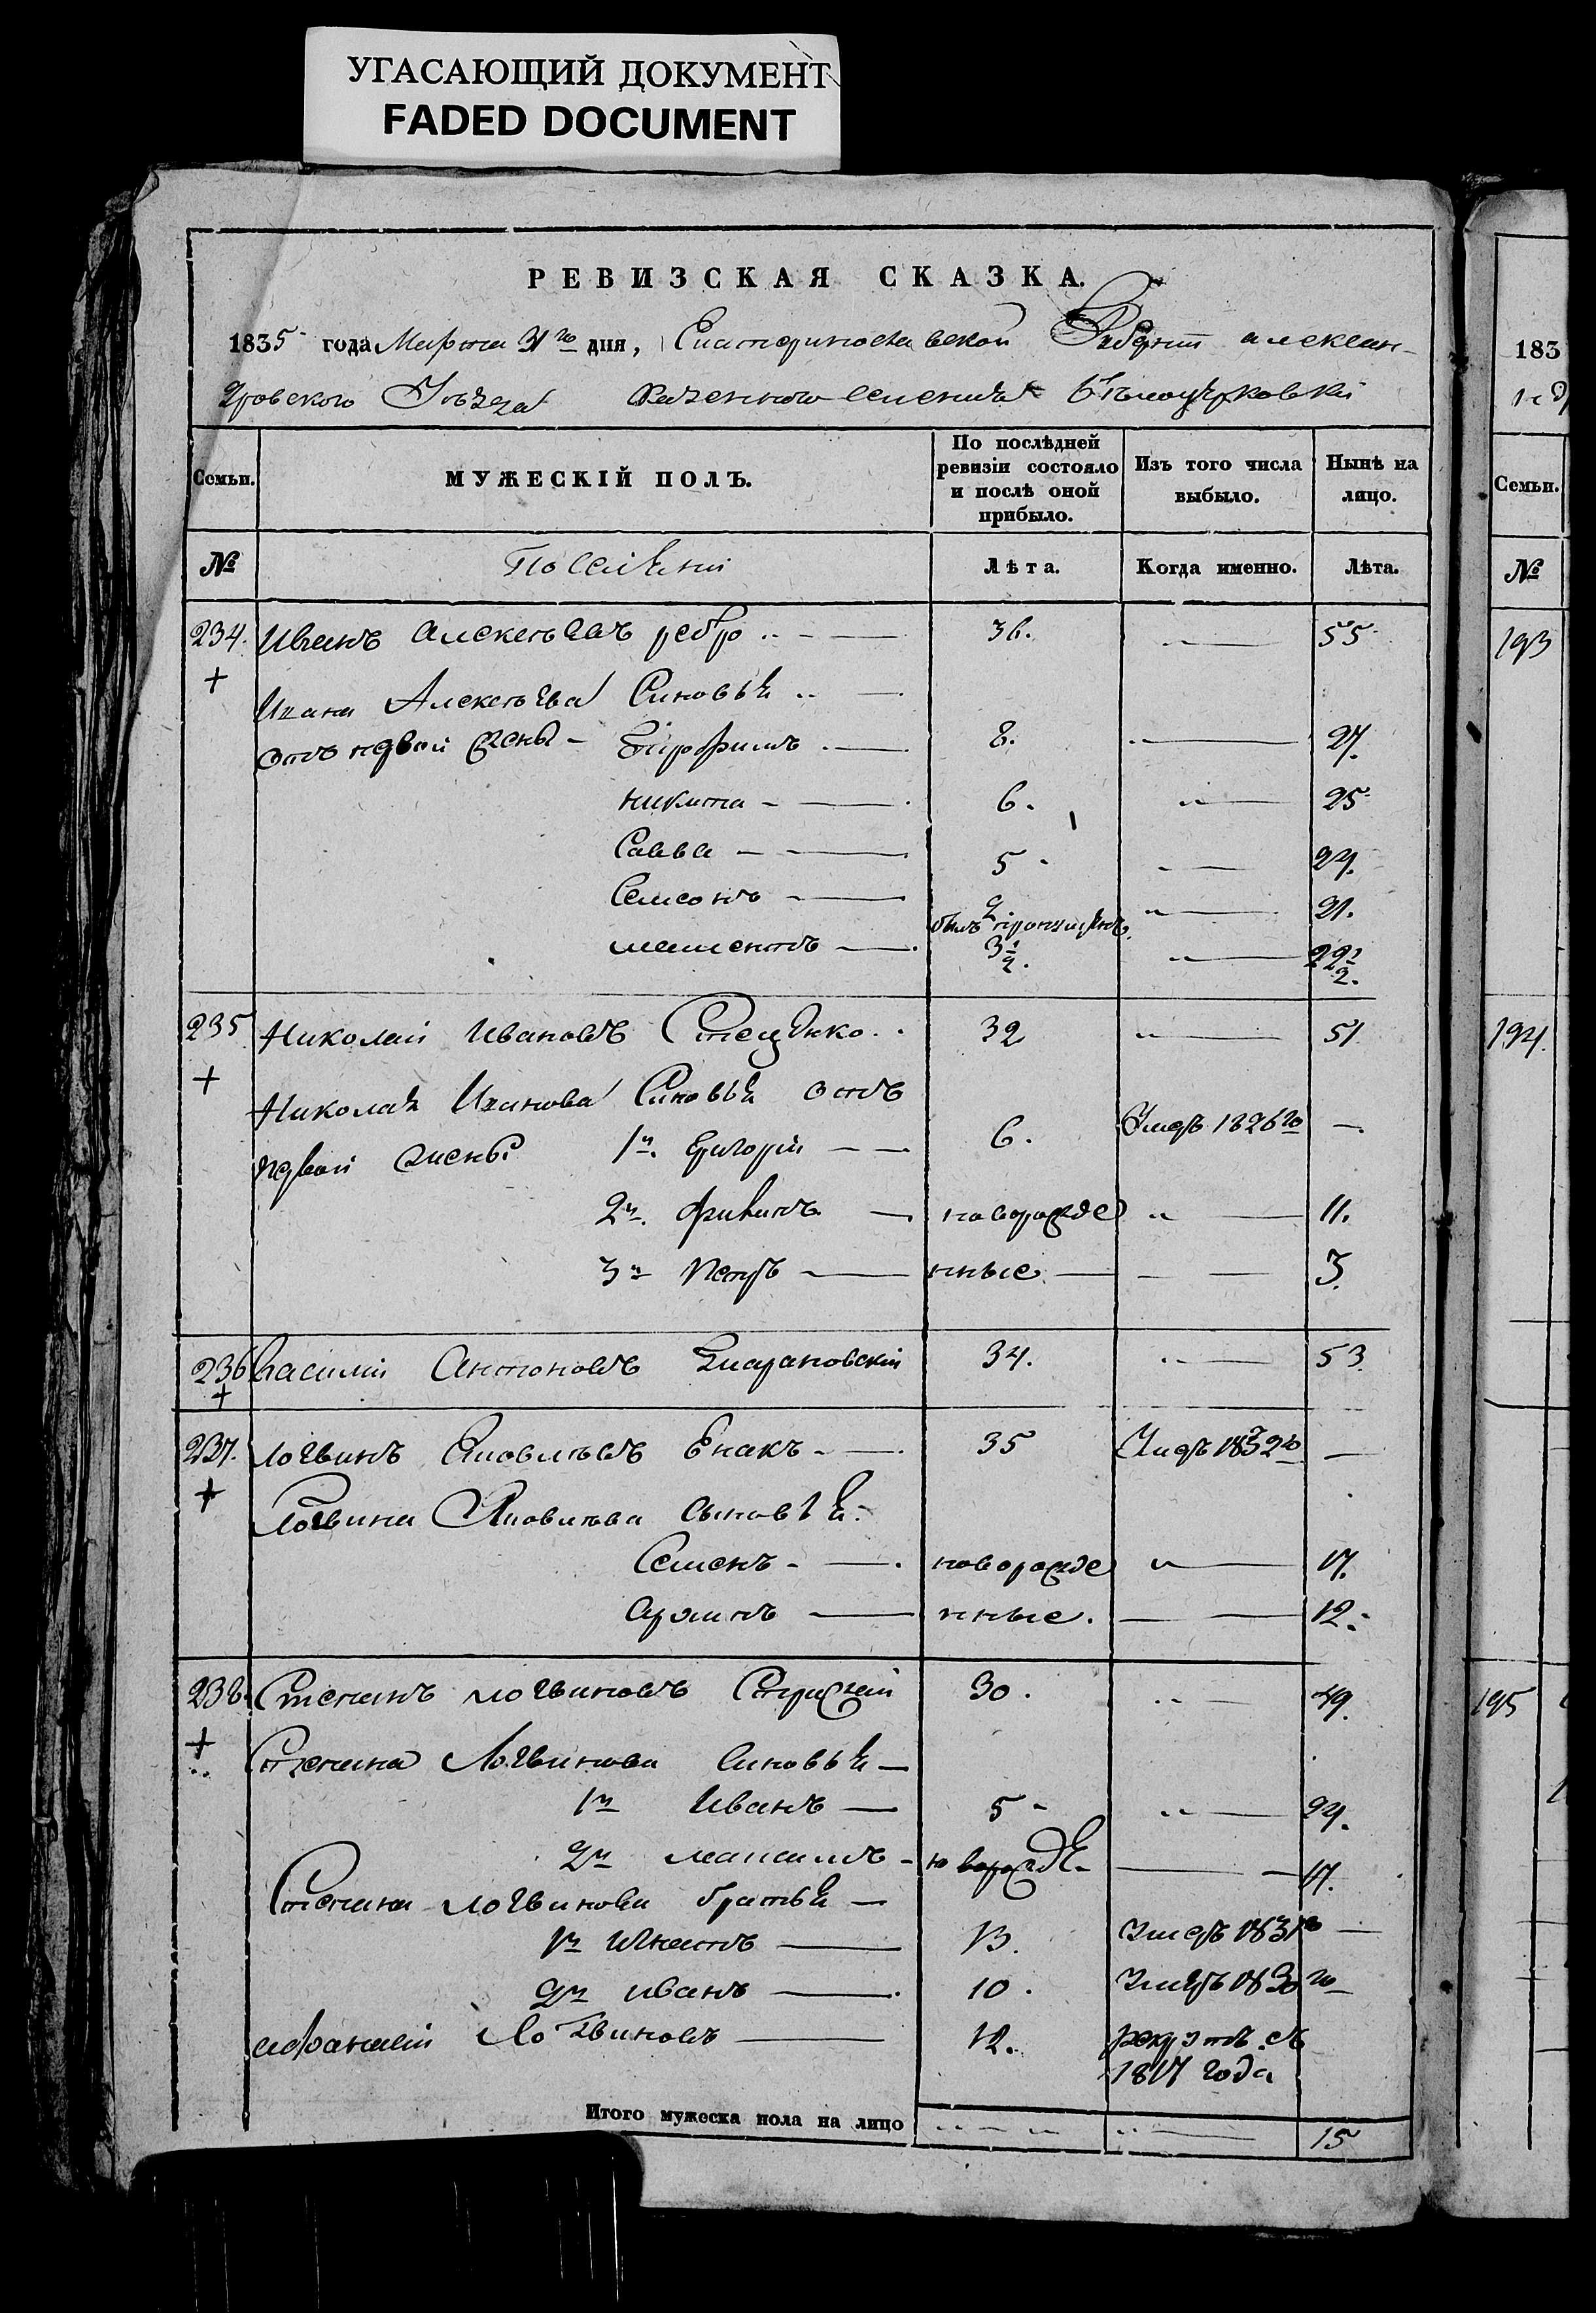 УГАСАЮЩИЙ ДОКУМЕНТ
FADED DOCUMENT
РЕВИЗСКАЯ СКАЗКА.
1835 года Марта 31го дня, Екатеринославской Губерніи алексан-
дровского Уѣзда казенного селенія Бѣлоцерковки
Семьи. МУЖЕСКІЙ ПОЛЪ. По послѣдней ревизіи состояло и послѣ оной прибыло. Изъ того числа выбыло. Нынѣ на лицо.
№ Лѣта. Когда именно. Лѣта.
234. Иванъ Алексѣевъ ребро 36. 55
Ивана Алексѣева Синовья
отъ первой жены - Трофимъ 8. 27.
никита - 6. 25
Савва - 5 24.
Самсонъ - 2 21.
былъ пропущенъ
3 1/2. 22 1/2.
235 Николай Ивановъ Стеценко 32 51
Николая Иванова Синовья отъ
первой жены 1й Григорій 6. Умеръ 1826го -
2й. новорожде 11.
3й Петръ нные 3.
236 василій Антоновъ 34. 53
237. логвинъ Самойловъ Енакъ 35 Умеръ 1832го -
Логвина Самойлова сыновья
Семенъ - новорожде 17.
нные. 12.
238. Степанъ логвиновъ 30. 49.
Степана Логвинова Синовья
1й Иванъ 5 24.
2й максимъ - новорожде 17.
Степана логвинова братья
1й Игнатъ 13. Умеръ 1831го -
2й иванъ 10. Умеръ 1830го
афанасій Логвиновъ 12. рекрутъ съ
1817 года
Итого мужеска пола на лицо 15
183
Семьи.
№
193
194.
195